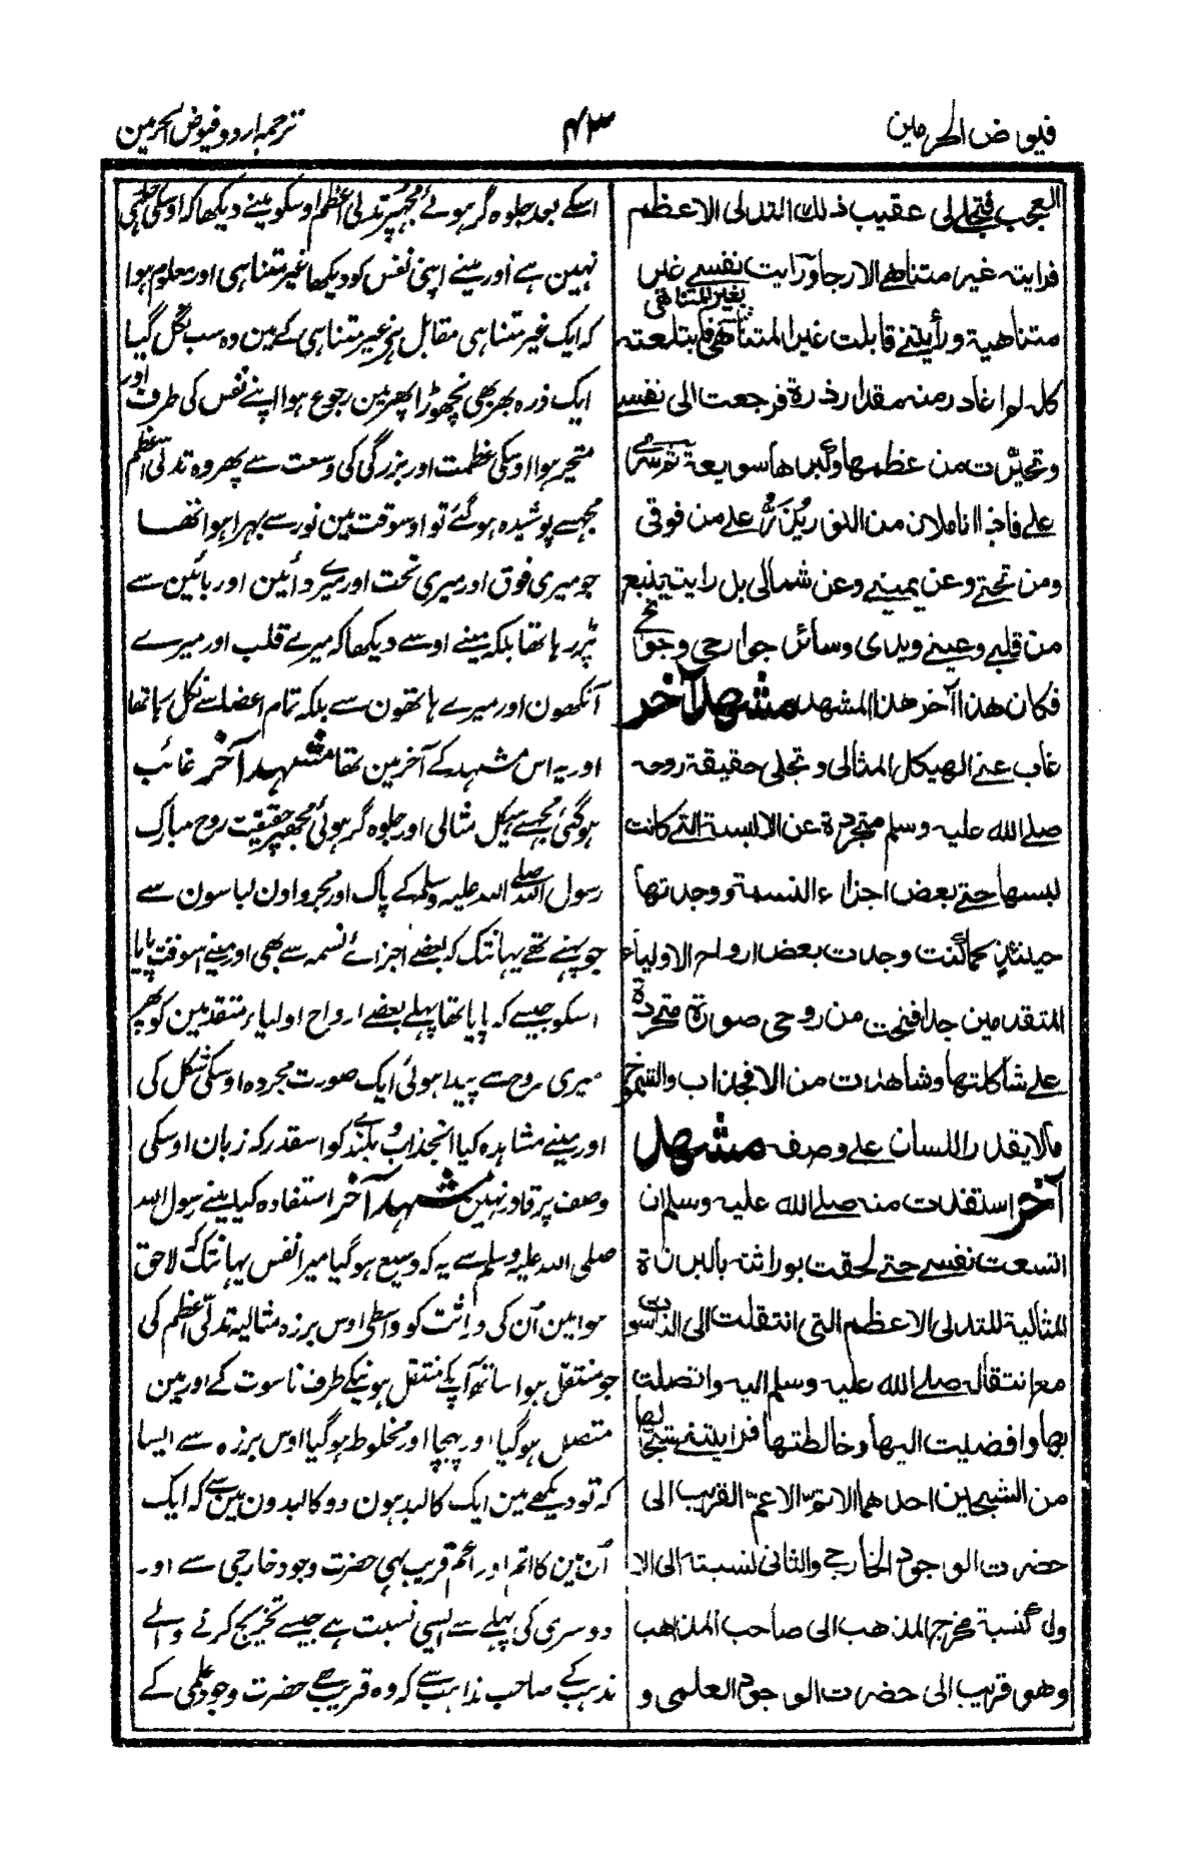 فیوض الحرمین
۴۳
ترجمہ اردو فیوض الحرمین
العجب فتجلى لى عقيب ذلك التدلى الاعظم
فرايته غير متناهى الارجا ورايت نفسى غير
بغير المتناهى
متناهية ورأيتنى قابلت غير المتناهى فابتلعته
كله لم اغادر منه مقدار ذرة فرجعت الى نفسى
وتحيرت من عظمها وكبرها سويعة ثم سرى
على فاذا انا ملان من النور ينزل على من فوقى
ومن تحتى وعن يمينى وعن شمالى بل رايته ينبع
من قلبى وعينى ويدى وسائر جوارحى وجوانحى
فكان هذا آخر هذا المشهد مشهد آخر
غاب عنى الهيكل المثالى وتجلى حقيقة روحه
صلى الله عليه وسلم متجردة عن الالبسة التى كانت
لبسها حتى بعض اجزاء النسمة ووجدتها
حينئذ كما كنت وجدت بعض ارواح الاولياء
المتقدمين جدا فنجت من روحى صورة متجردة
على شاكلتها وشاهدت من الانجذاب والشموخ
مالا يقدر اللسان على وصفه مشهد
آخر استفدت منه صلى الله عليه وسلم ان
اتسعت نفسى حتى لحقت بوراثته بالبرزة
المثالية للتدلى الاعظم التى انتقلت الى الناسوت
مع انتقاله صلى الله عليه وسلم اليه واتصلت
بها وافضيت اليها وخالطتها فرايتنى شبحا بها
من الشبحين احدهما الاتم الاعم القريب الى
حضرت الوجود الخارجى والثانى نسبته الى الا
ول كنسبة مخرج المذهب الى صاحب المذهب
وهو قريب الى حضرت الوجود العلمى و
اسکے بعد جلوہ گر ہوئے مجھپر تدلی اعظم اوسکو مینے دیکھا کہ اوسکی
نہین ہے اور مینے اپنی نفس کو دیکھا غیر متناہی اور معلوم ہوا
کہ ایک غیر متناہی مقابل ہے غیر متناہی کے مین وہ سب نگل گیا
ایک ذرہ بھر بھی نچھوڑا پھر مین رجوع ہوا اپنے نفس کی طرف اور
متحیر ہوا اوسکی عظمت اور بزرگی کی وسعت سے پھر وہ تدلی اعظم
مجھسے پوشیدہ ہو گئے تو اوسوقت مین نور سے بہرا ہوا تھا
جو میری فوق اور میری تحت اور میرے دائین اور بائین سے
پڑ رہا تھا بلکہ مینے اوسے دیکھا کہ میرے قلب اور میرے
آنکھون اور میرے ہاتھون سے بلکہ تمام اعضا سے نکل رہا تھا
اور یہ اس مشہد کے آخر مین تھا مشہد آخر غائب
ہوگئی مجسے ہیکل مثالی اور جلوہ گر ہوئی مجھپر حقیقت روح مبارک
رسول اللہ صلے اللہ علیہ وسلم کے پاک اور مجرد اون لباسون سے
جو پہنے تھے یہانتک کہ بعضے اجزائے نسمہ سے بھی اور مینے اسوقت پایا
اسکو جیسے کہ پایا تھا پہلے بعضے ارواح اولیاء متقدمین کو پھر
میری روح سے پیدا ہوئی ایک صورت مجردہ اوسکی شکل کی
اور مینے مشاہدہ کیا انجذاب و بلندے کو اسقدر کہ زبان اوسکی
وصف پر قادر نہین مشہد آخر استفادہ کیا مینے رسول اللہ
صلی اللہ علیہ وسلم سے یہ کہ وسیع ہو گیا میرا نفس یہانتک کہ لاحق
ہوا مین اُن کی وراثت کو واسطی اوس برزہ مثالیہ تدلی اعظم کی
جو منتقل ہوا ساتھ آپکے منتقل ہونیکے طرف ناسوت کے اور مین
متصل ہو گیا اور پہنچا اور مخلوط ہو گیا اوس برزہ سے ایسا
کہ تو دیکھے مین ایک کالبد ہون دو کالبدون مین سے کہ ایک
اُن مین کا اتم اور اعم قریب ہی حضرت وجود خارجی سے اور
دوسری کی پہلے سے ایسی نسبت ہے جیسے تخریج کرنے والے
مذہب کے صاحب مذہب سے کہ وہ قریب ہے حضرت وجود علمی کے